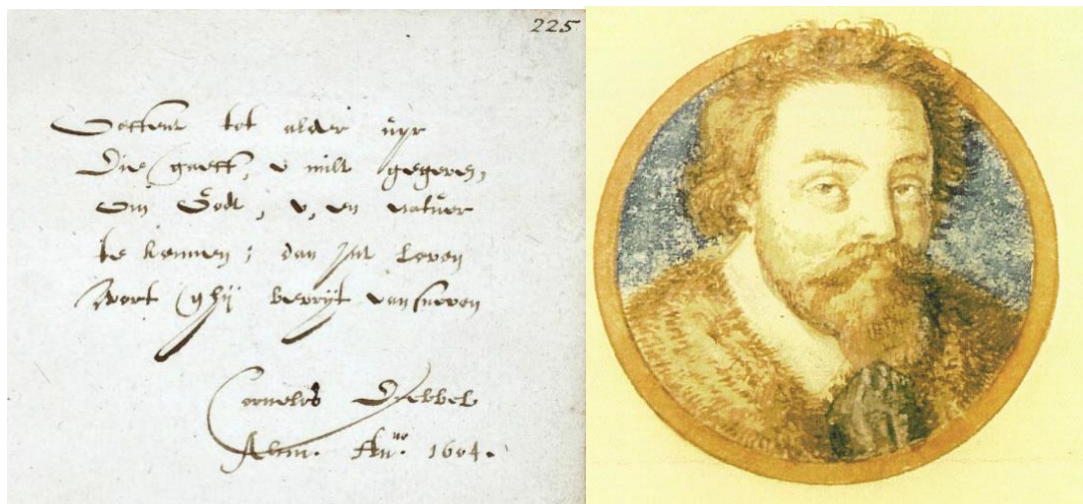 225
tot alder uyr
Die gaeff, v milt gegeven,
Om Godt, v, en natuer
te kennen; dan int leven
Wort ghij bevryt van sneven
Cornelis Drebbel
Alcm. An.no 1604.